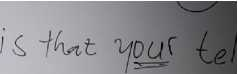 is that your tel